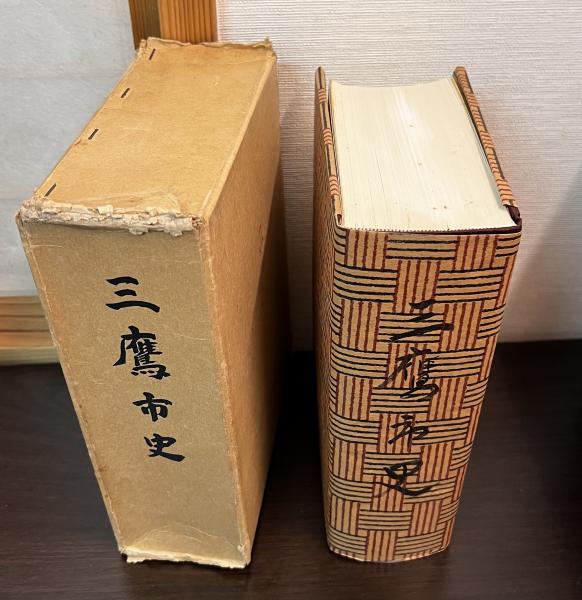 三鷹市史
三鷹市史